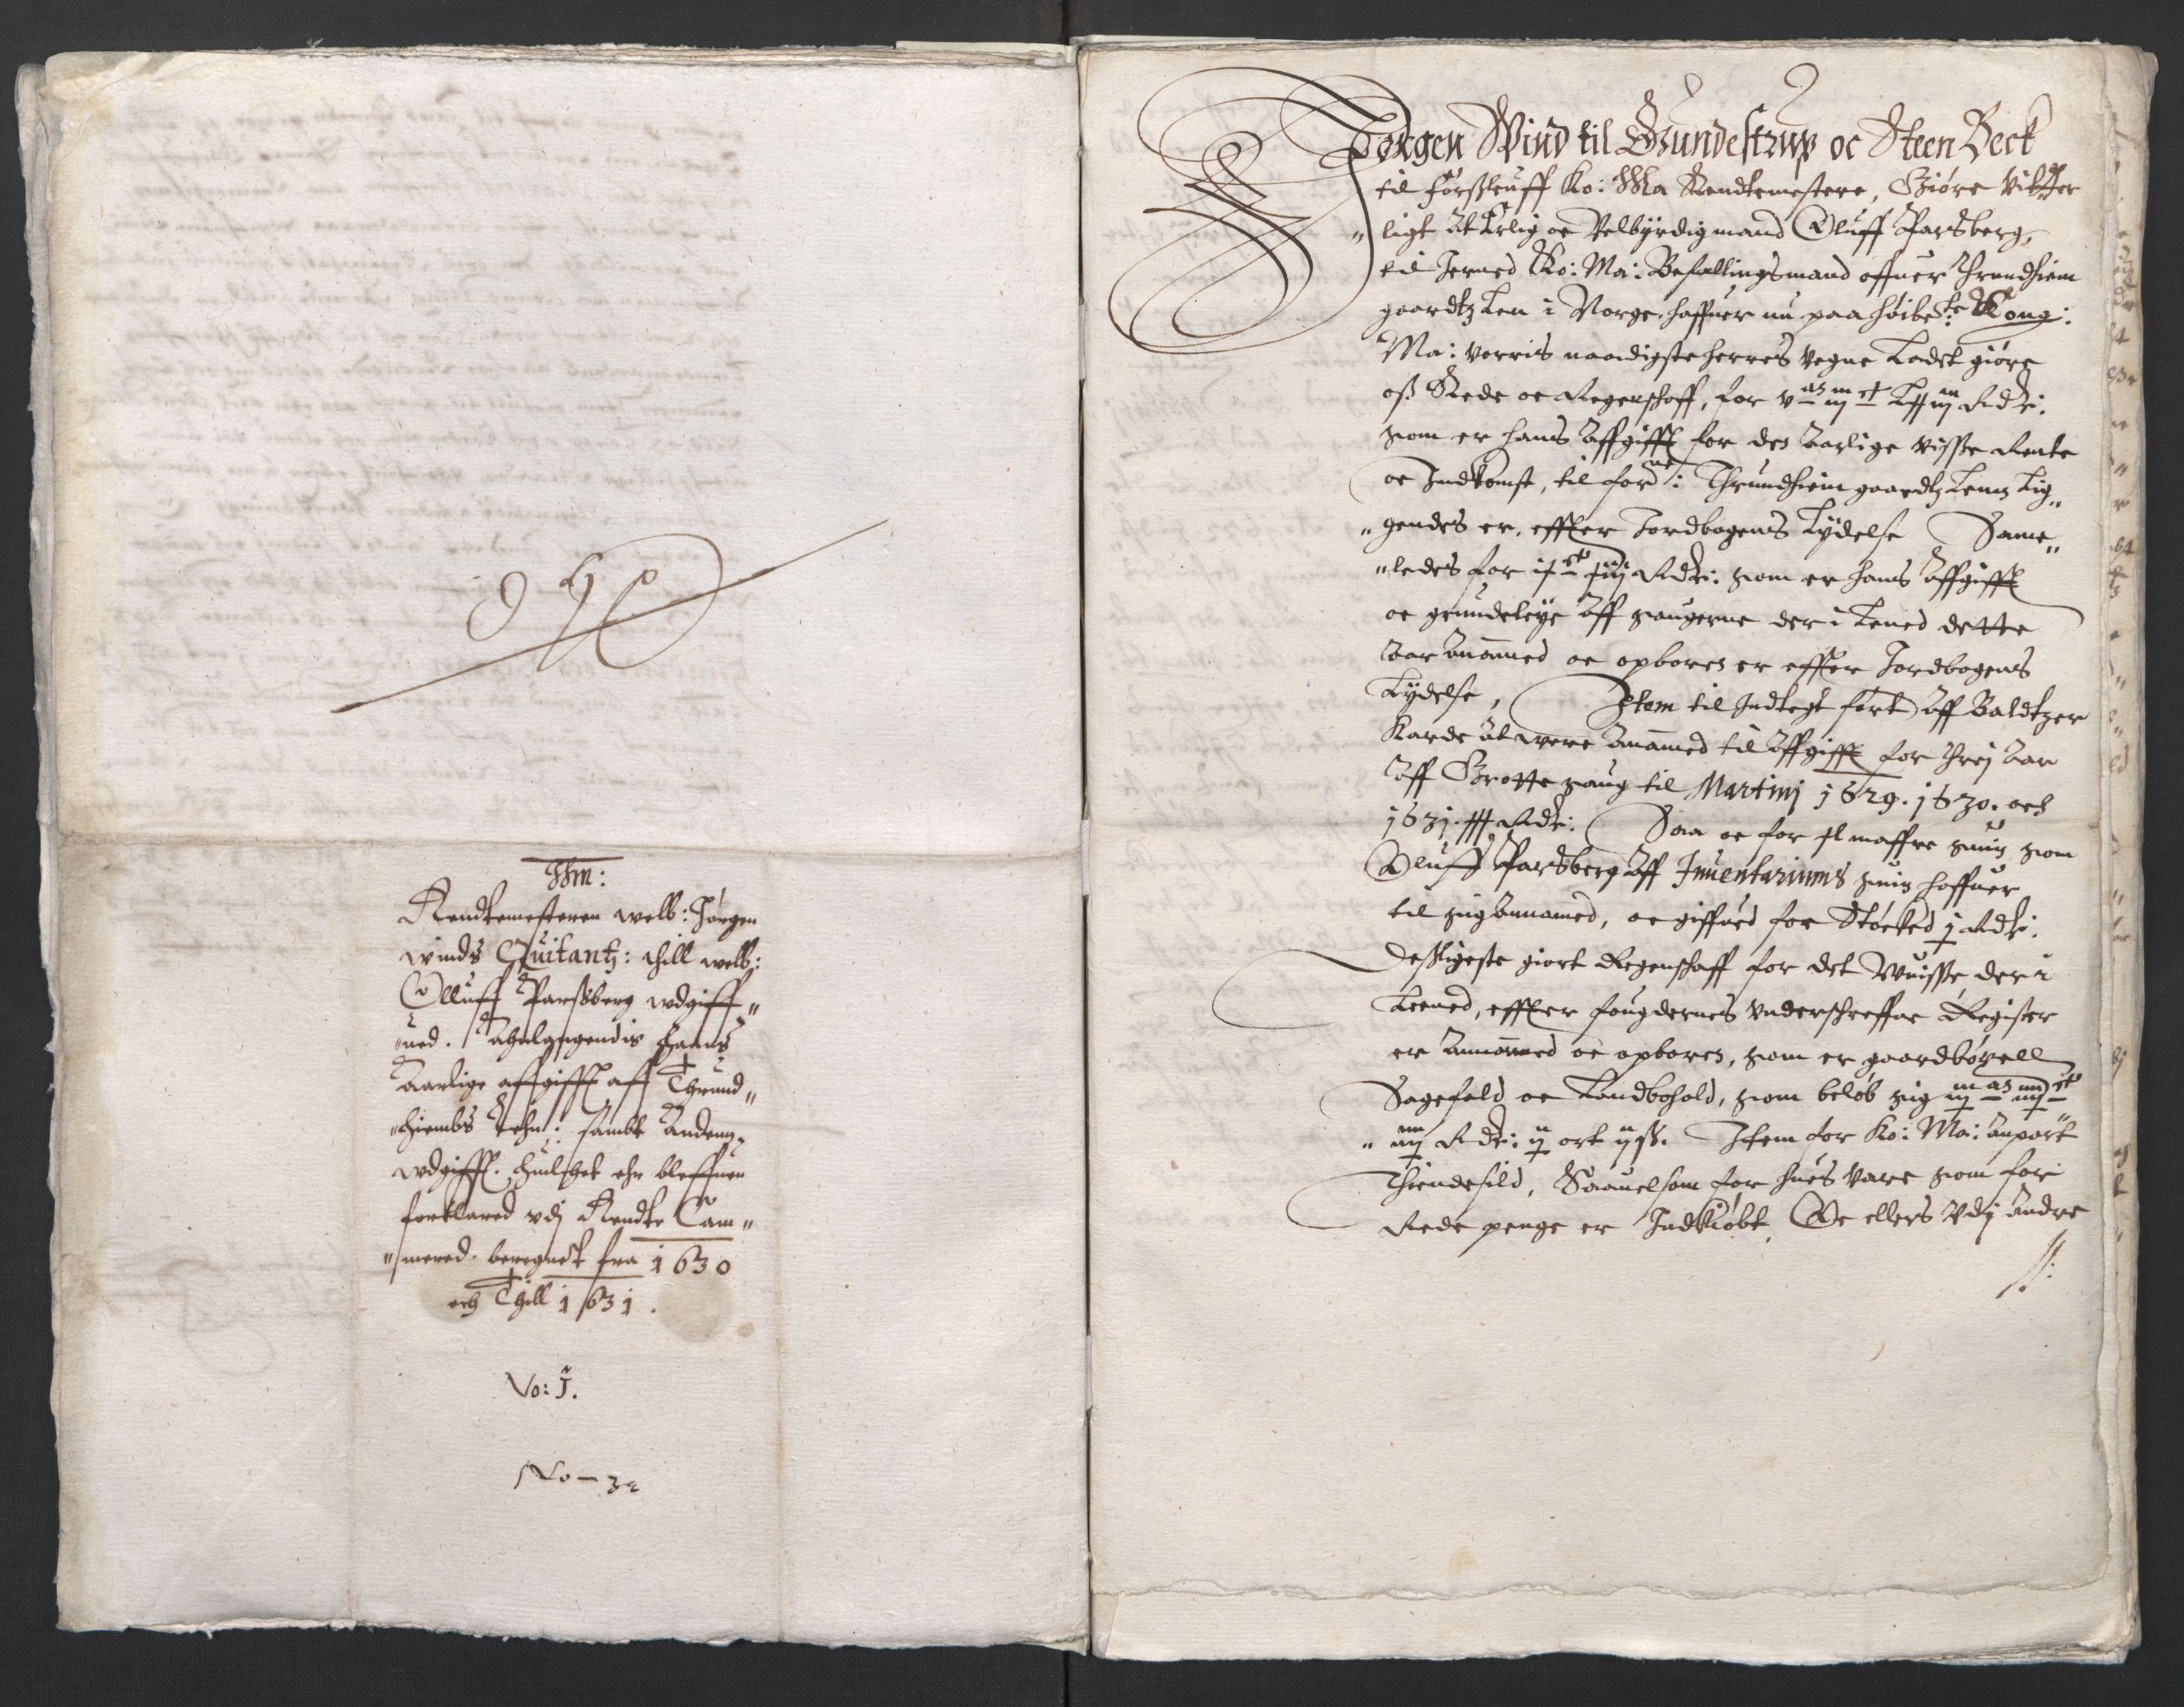 HM:
Rendtemesteren welb: Jørgen
winds Quitantz: thill welb:
Olluff Parsberg wdgiff„
„ued. Anlangendis hans
Aarlige affgifft aff Thrund„
„hiembs Lehn: sambt Anden
wdgifft. huilchet ehr bleffuen
forklared vdj Rendte Cam„
„mered. beregnet fra 1630
och Thill 1631.
No: 1.
No – 32
Jørgen Wind til Gundestrup oc Steen Beck
til Førsleuff Ko: Ma Rendtemestere, Giøre vitter
„ligt At Erlig oc Velbyrdig mand Oluff Parsberg,
til Jerned Ko: Ma: Befallingsmand offuer Thrundhiem
gaardtz Len i Norge, haffuer nu paa høibe:te Kong:
Ma: vorris naadigste herres vegne Ladet giøre
oß Rede oc Regenschaff, for
som er hans Affgifft for den Aarlige visse Rente
oc Indkomst, til for:ne Thrundhiem gaardtz Len Lig„
„gendes er, effter Jordbogens Lydelse Same„
„ledes for Rdr: som er hans Affgifft
oc grundeleye Aff saugerne der i Lened dette
Aar Anammed oc opboren er effter Jordbogens
Lydelse, Item til Indtegt ført Aff Baldtzer
Karde At were Anammed til Affgifft for Threj Aar
Aff Grotte saug til Martinj 1629. 1630. och
1631. Rdr: Saa oc for maffre suin som
Oluff Parsberg Aff Inuentariums suin haffuer
til sig Annamed, oc giffued for Støcked j Rdr.
Desligeste giort Regenschaff for det Wuisse, der i
Leened, effter fougdernes vnderschreffne Register
er Annammed oc opboren, som er gaardbøxell
Sagefald oc Landbohold, som beløb sig
Rdr: ij ort ij ß. Item for Ko: Ma: anpart
Thiendesild, Saauelsom for hues Vare som for
Rede penge er Indkiøbt, Oc ellers Vdj Andre